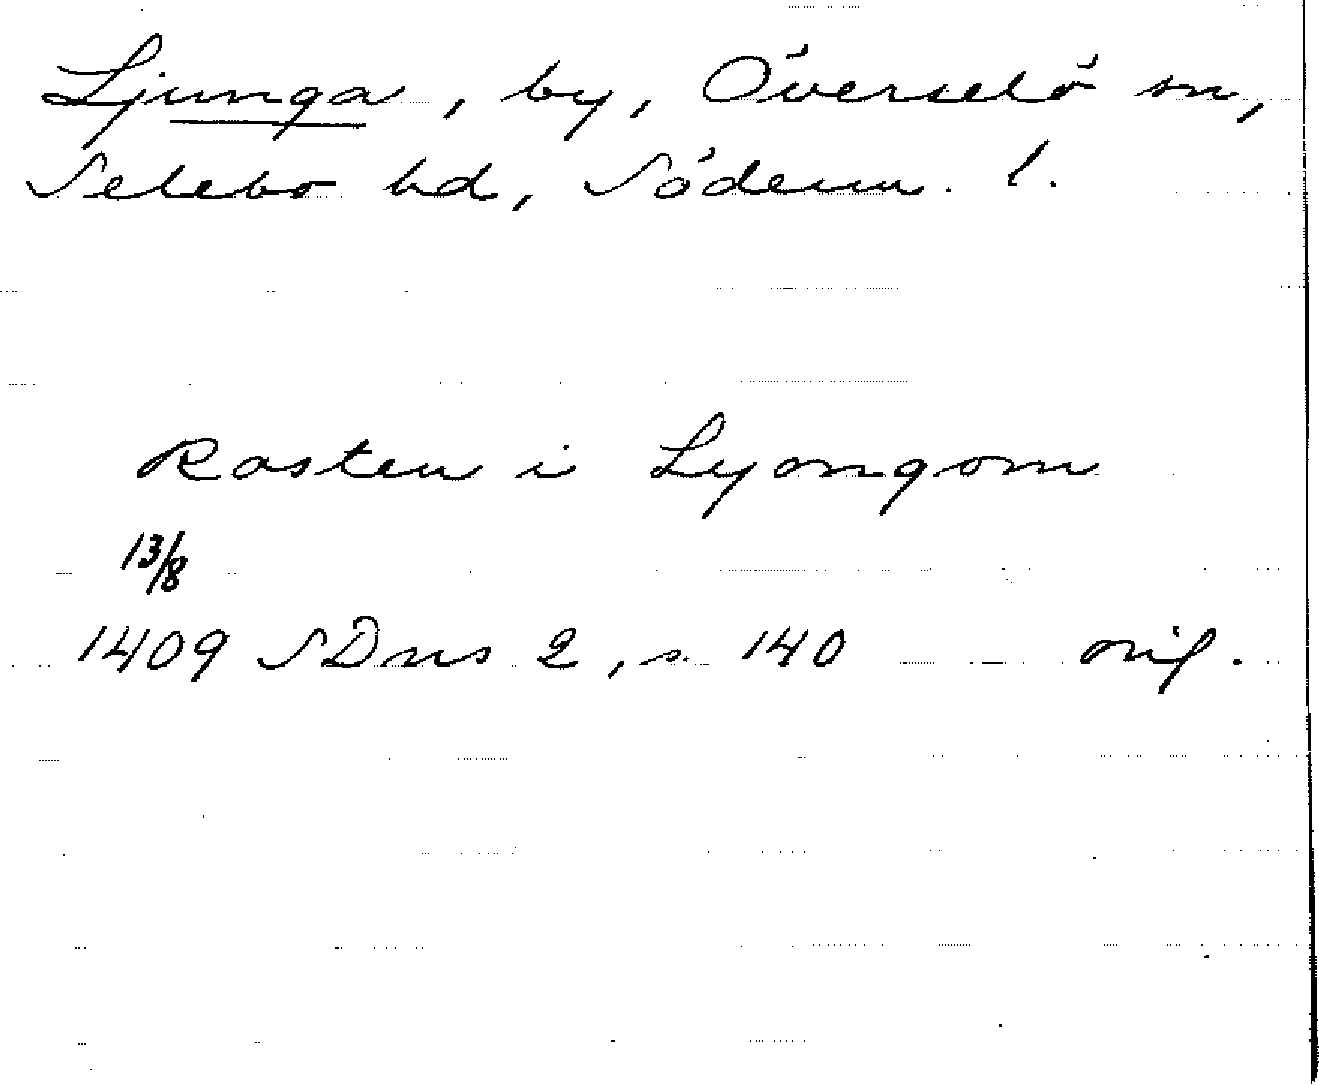 Ljunga, by, Överselö sn,
Selebo hd, Söderm. l.
Rosten i Lyongom
13/8
1409 SDns 2, s. 140 orig.